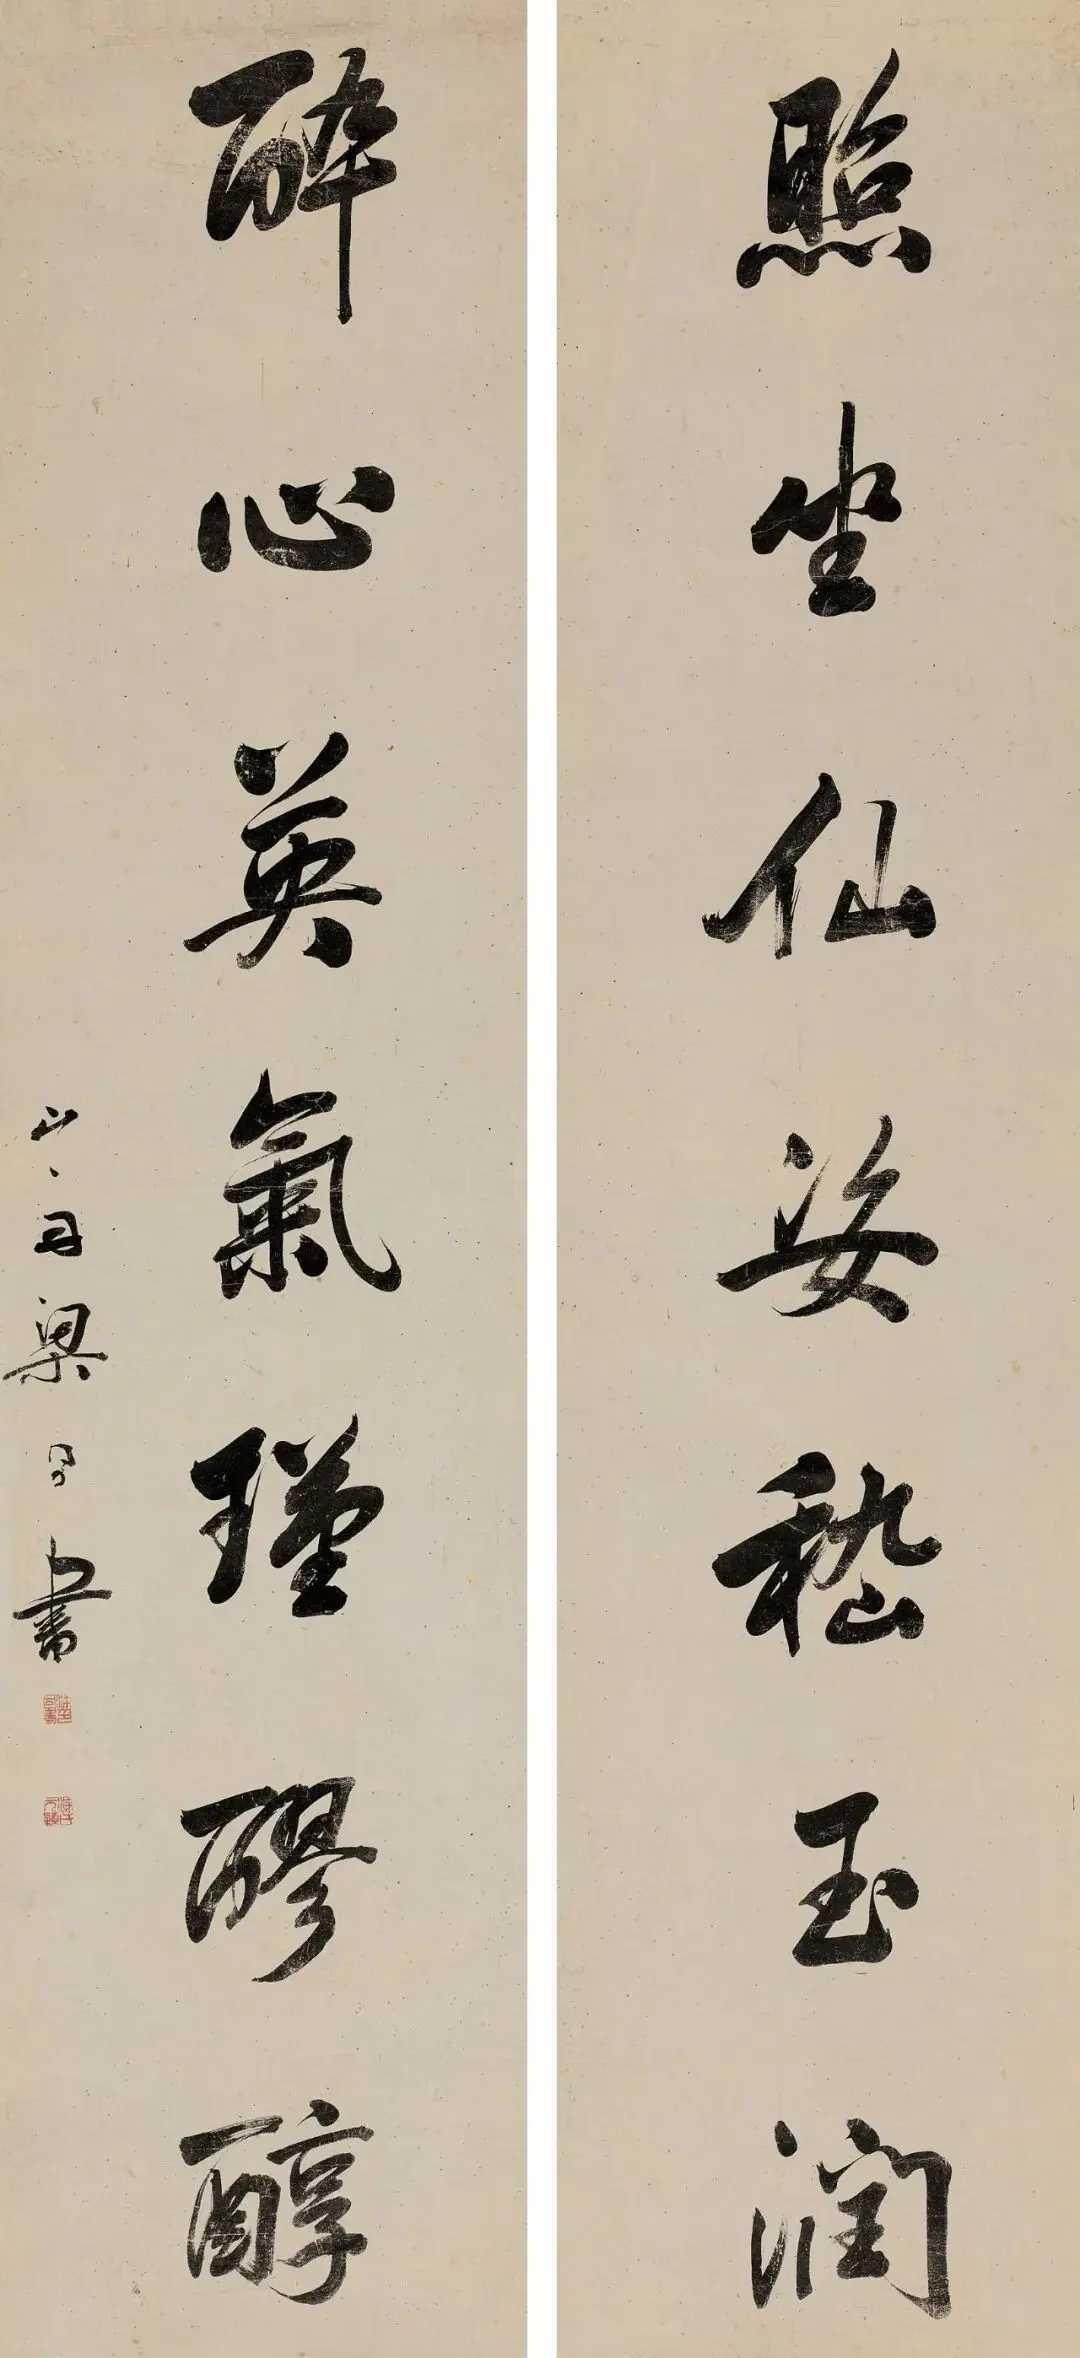 照坐仙姿嵇玉润
醉心英氣瑾醪醇
山舟梁同書